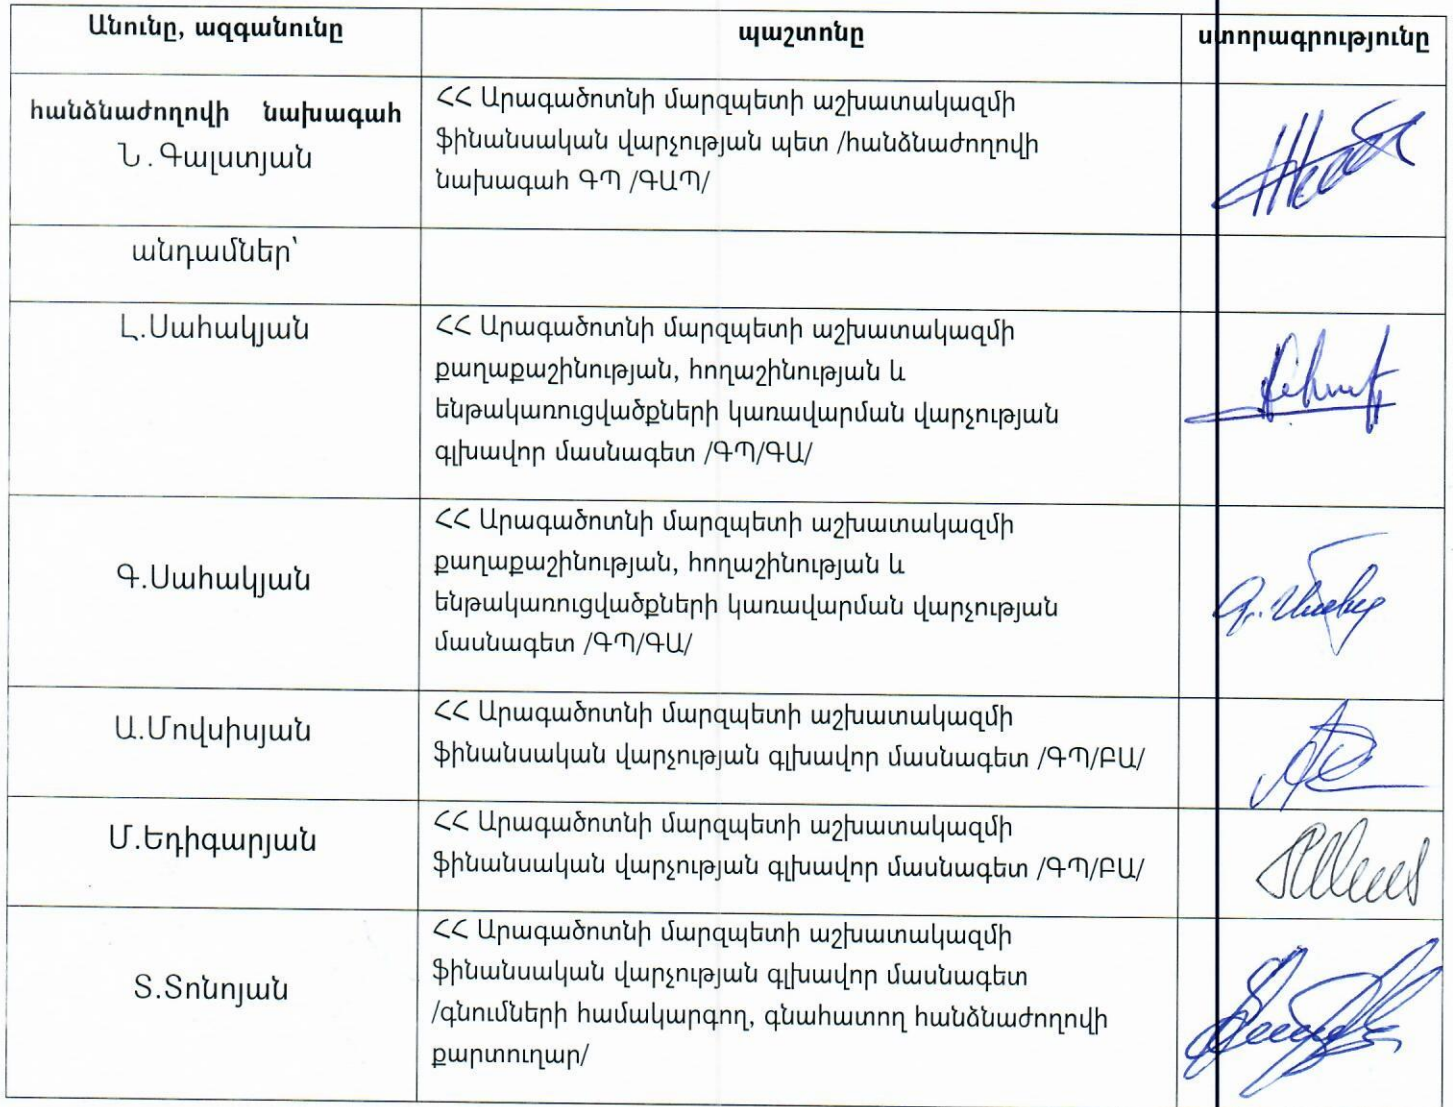 Անունը, ազգանունը պաշտոնը ստորագրությունը
հանձնաժողովի նախագահ
Ն.Գալստյան
ՀՀ Արագածոտնի մարզպետի աշխատակազմի
ֆինանսական վարչության պետ /հանձնաժողովի
նախագահ ԳՊ /ԳԱՊ/
անդամներ՝
Լ.Սահակյան
ՀՀ Արագածոտնի մարզպետի աշխատակազմի
քաղաքաշինության, հողաշինության և
ենթակառուցվածքների կառավարման վարչության
գլխավոր մասնագետ /ԳՊ/ԳԱ/
Գ.Սահակյան
ՀՀ Արագածոտնի մարզպետի աշխատակազմի
քաղաքաշինության, հողաշինության և
ենթակառուցվածքների կառավարման վարչության
մասնագետ /ԳՊ/ԳԱ/
Ա.Մովսիսյան
ՀՀ Արագածոտնի մարզպետի աշխատակազմի
ֆինանսական վարչության գլխավոր մասնագետ /ԳՊ/ԲԱ/
Մ.Եդիգարյան
ՀՀ Արագածոտնի մարզպետի աշխատակազմի
ֆինանսական վարչության գլխավոր մասնագետ /ԳՊ/ԲԱ/
Տ.Տոնոյան
ՀՀ Արագածոտնի մարզպետի աշխատակազմի
ֆինանսական վարչության գլխավոր մասնագետ
/գնումների համակարգող, գնահատող հանձնաժողովի
քարտուղար/